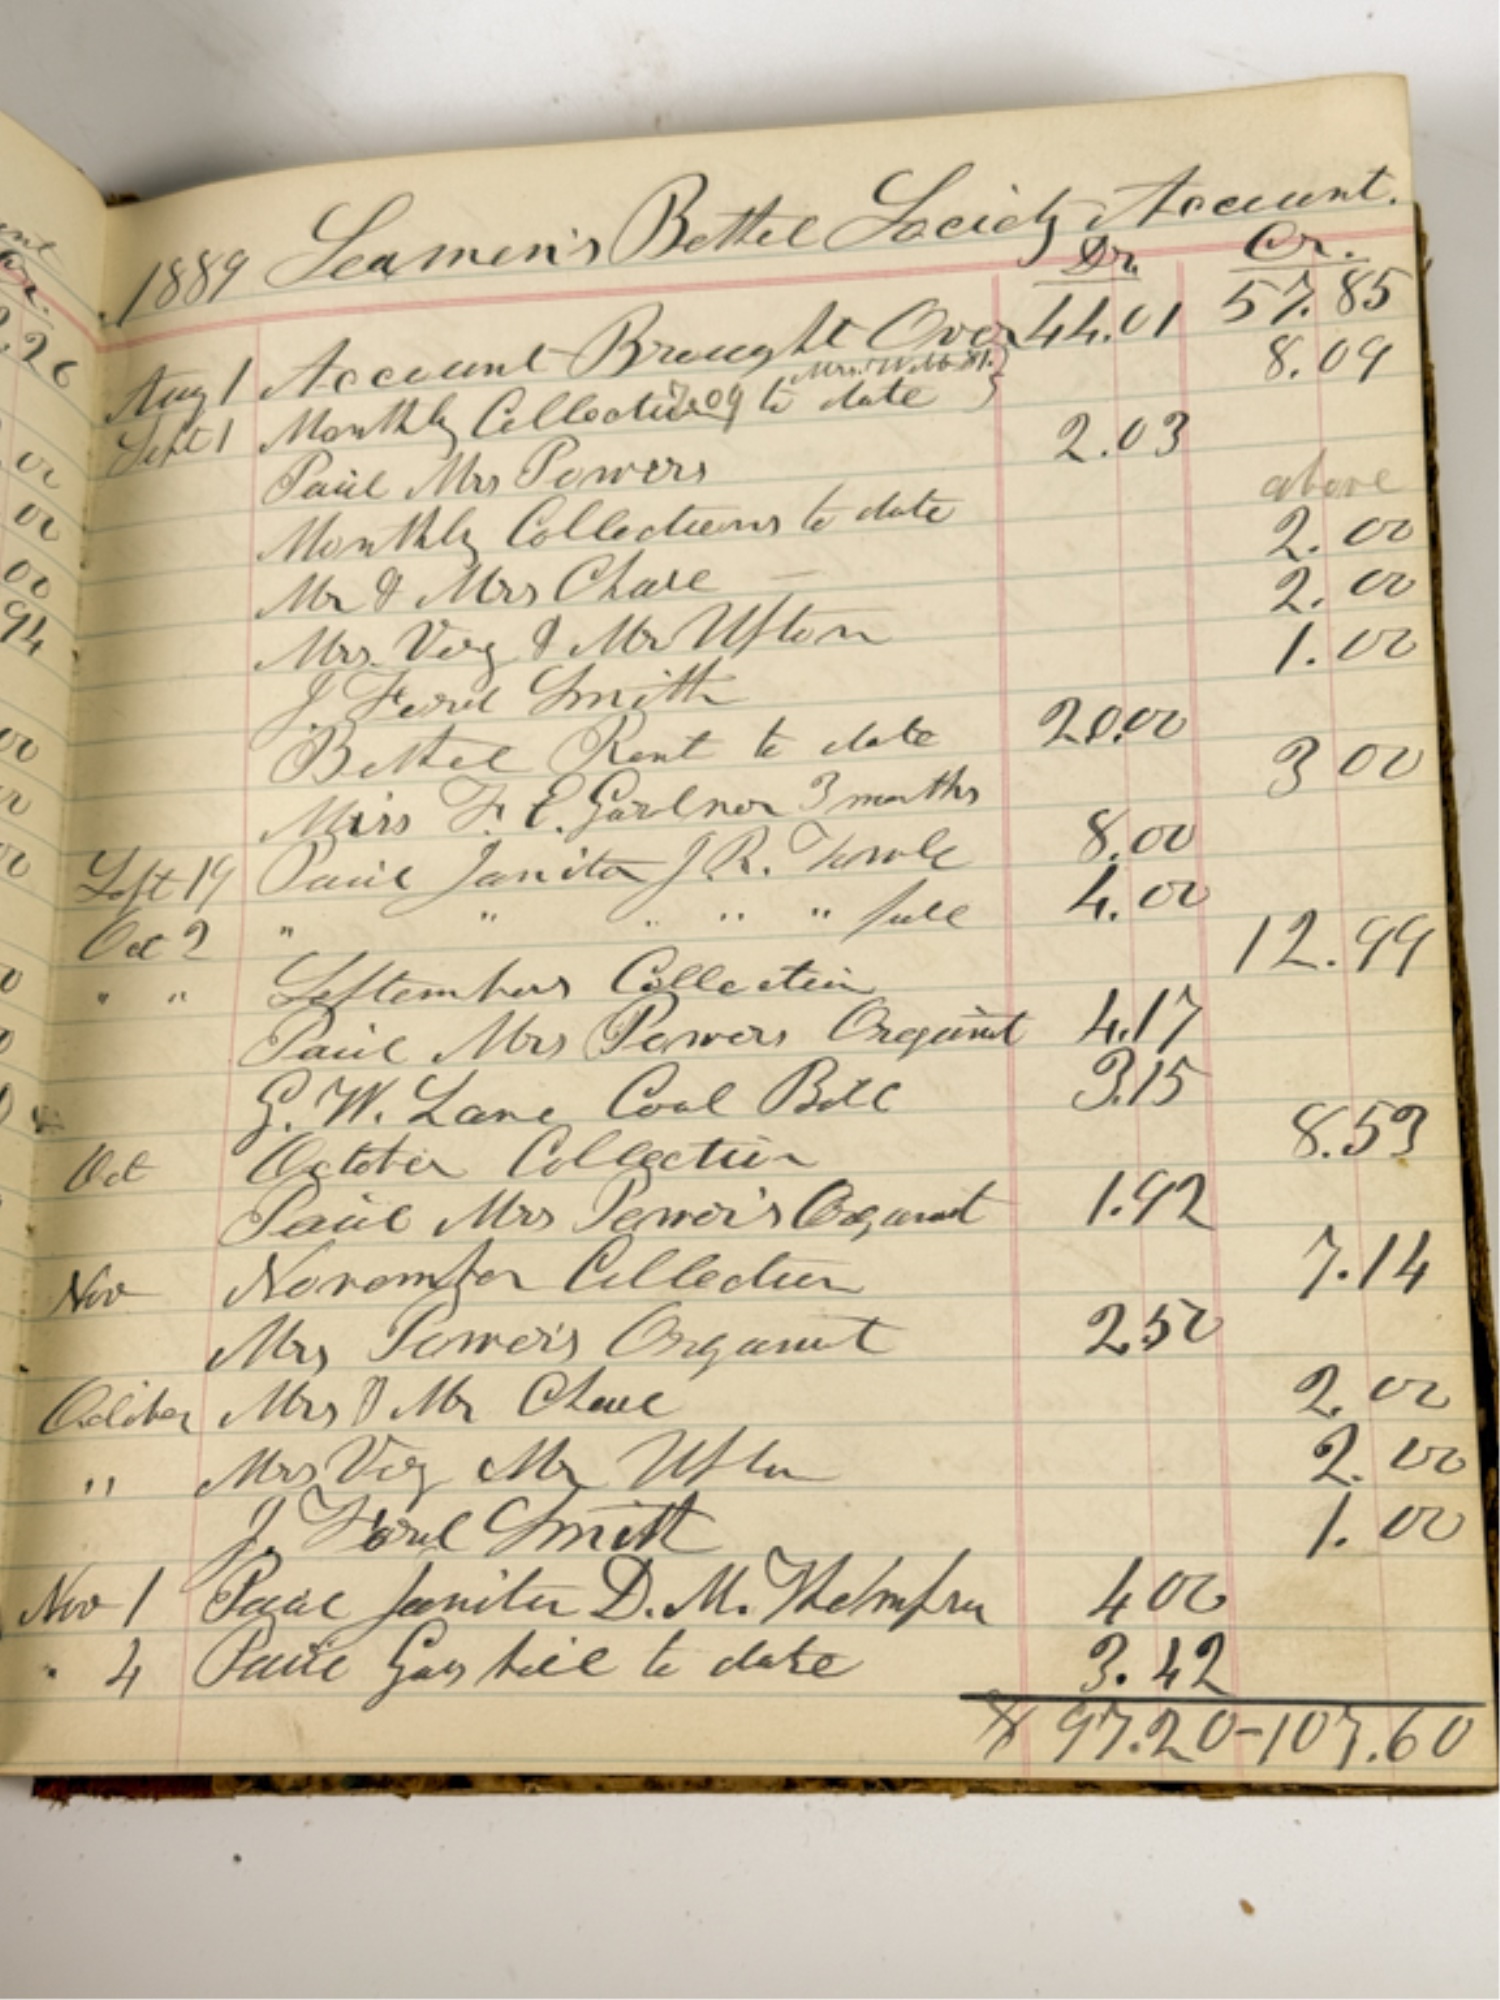 1889 Seamen's Bethel Society Account.
Dr. Cr.
Aug 1 Account Brought Over 44.01 57.85
Mrs. Webb $1.
Sept 1 Monthly Collection 7.09 to date } 8.09
Paid Mrs Powers 2.03
Monthly Collections to date above
Mr & Mrs Chase 2.00
Mrs. Veig & Mr Upton 2.00
J. Ford Smith 1.00
Bethel Rent to date 20.00
Miss F. E. Gardner 3 months 3 00
Sept 19 Paid Janitor J. R. Towle 8.00
Oct 2 " " " " " full 4.00
" " Septembers Collection 12.99
Paid Mrs Powers Organist 4.17
G. W. Lane Coal Bill 3.15
Oct October Collection 8.53
Paid Mrs Power's Organist 1.92
Nov November Collection 7.14
Mrs Power's Organist 2.50
October Mrs & Mr Chase 2.00
" Mrs Veig Mr Upton 2.00
J. Ford Smith 1.00
Nov 1 Paid Janitor D. M. 4 00
" 4 Paid Gas bill to date 3.42
$ 97.20-107.60
ar.
2.26
00
00
00
94
00
00